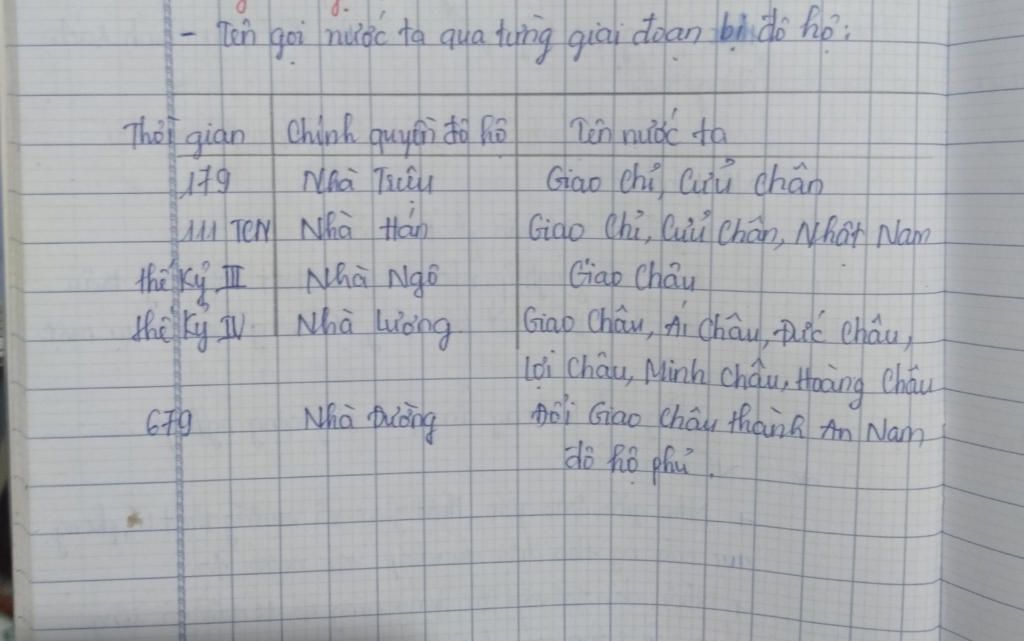 - Tên gọi nước ta qua từng giai đoạn bị đô hộ:
Thời gian Chính quyền đô hộ Tên nước ta
179 Nhà Triệu Giao Chỉ, Cửu Chân
111 TCN Nhà Hán Giao Chỉ, Cửu Chân, Nhật Nam
thế kỷ III Nhà Ngô Giao Châu
thế kỷ IV Nhà Lương Giao Châu, Ái Châu, Đức Châu,
Lợi Châu, Minh Châu, Hoàng Châu
679 Nhà Đường Đổi Giao Châu thành An Nam
đô hộ phủ.